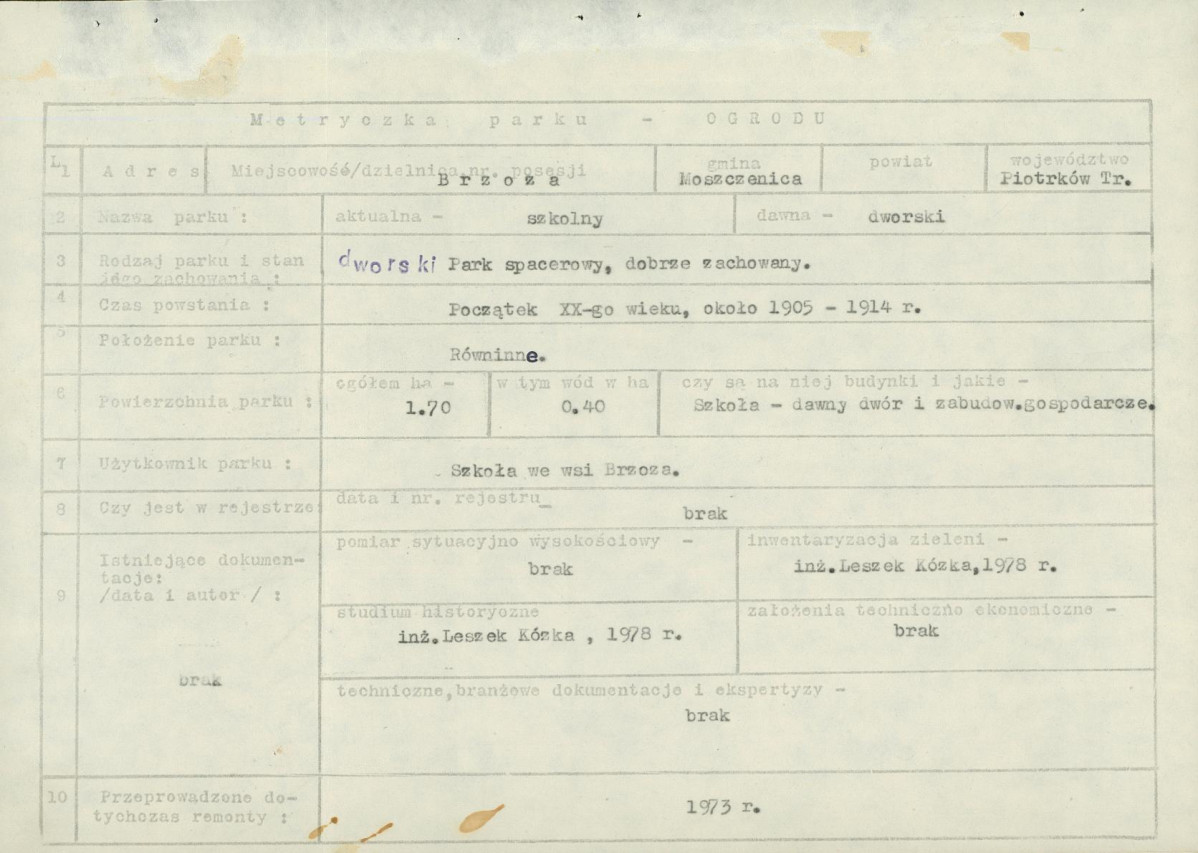 Metryczka parku - OGRODU
L1 Adres Miejscowość/dzielnica nr. posesji gmina powiat województwo
Brzoza Moszczenica Piotrków Tr.
2 Nazwa parku : aktualna - szkolny dawna - dworski
3 Rodzaj parku i stan dworski Park spacerowy, dobrze zachowany.
jego zachowania :
4 Czas powstania : Początek XX-go wieku, około 1905 - 1914 r.
5 Położenie parku :
Równinne.
6 Powierzchnia parku : ogółem ha - w tym wód w ha czy są na niej budynki i jakie -
1.70 0.40 Szkoła - dawny dwór i zabudow.gospodarcze.
7 Użytkownik parku : Szkoła we wsi Brzoza.
8 Czy jest w rejestrze data i nr. rejestru
brak
9 Istniejące dokumen-
tacje:
/data i autor / :
brak
pomiar sytuacyjno wysokościowy -
brak
inwentaryzacja zieleni -
inż.Leszek Kózka,1978 r.
studium historyczne
inż.Leszek Kózka , 1978 r.
założenia techniczno ekonomiczne -
brak
techniczne,branżowe dokumentacje i ekspertyzy -
brak
10 Przeprowadzone do-
tychczas remonty :
1973 r.